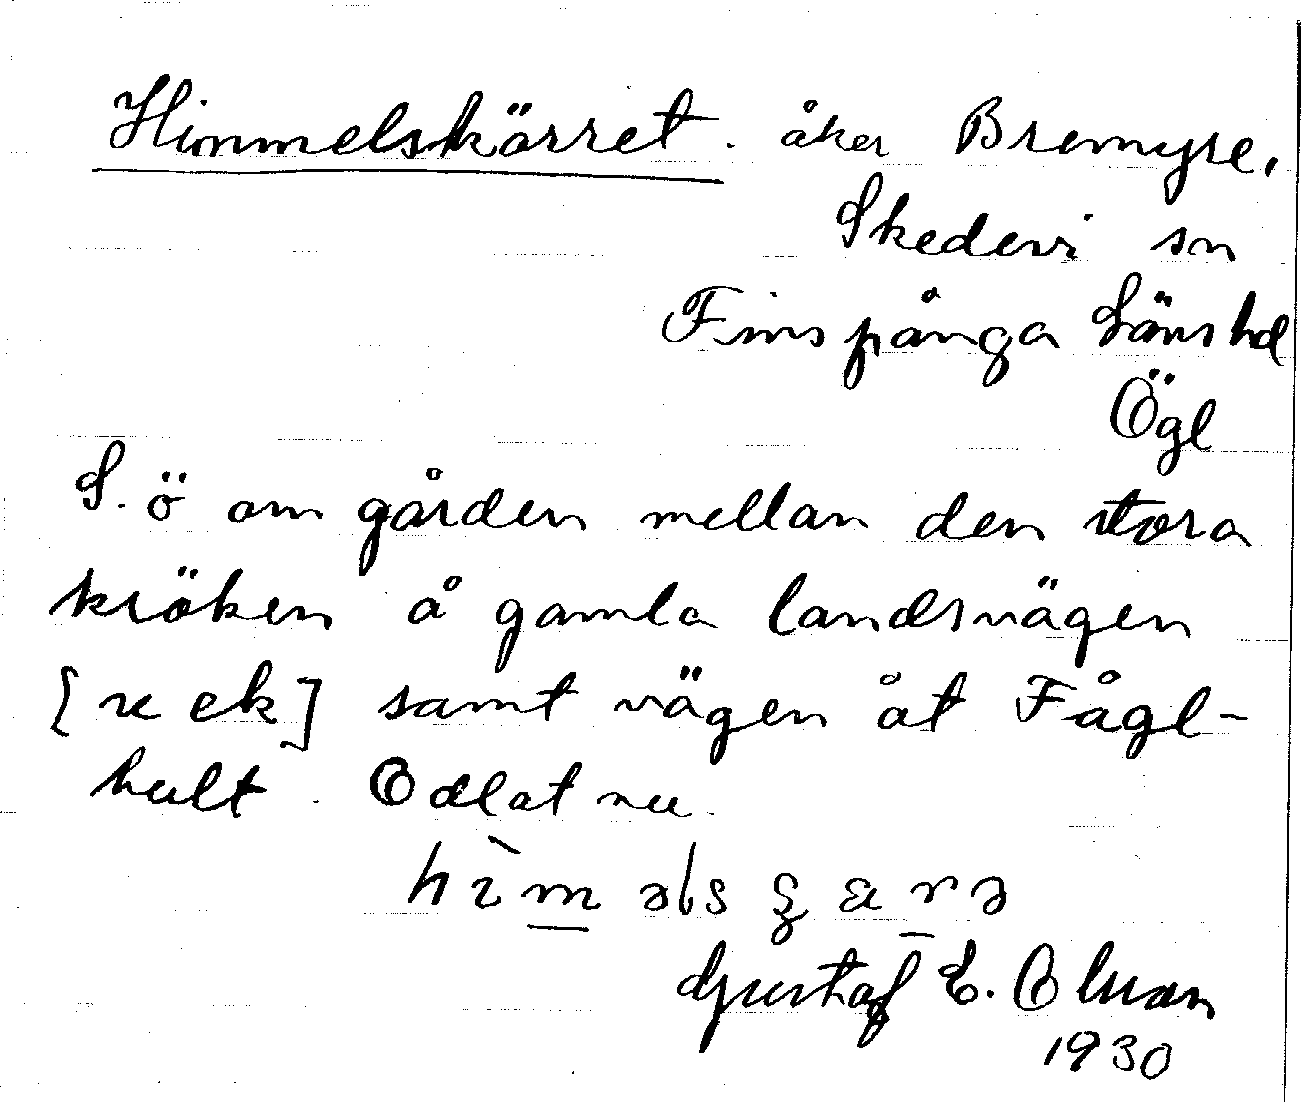 Himmelskärret. åker Bremyre.
Skedevi sn
Finspånga Läns hd
Ögl
S. ö om gården mellan den stora
kröken å gamla landsvägen
[se ek] samt vägen åt Fågl-
hult. Odlat nu.
Gustaf E. Olsson
1930